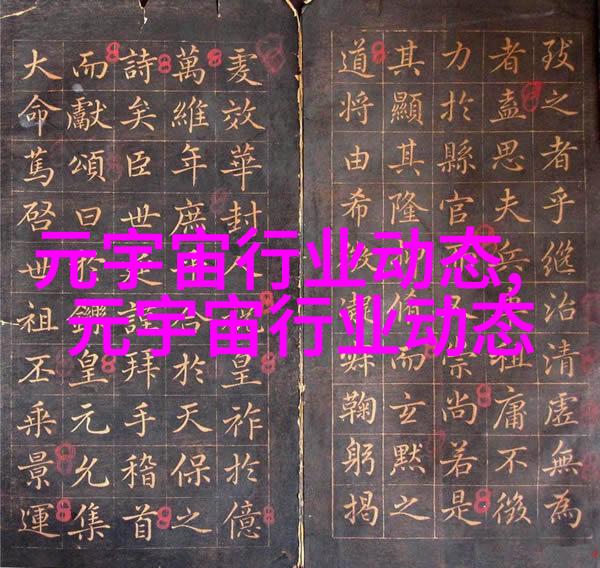 元宇宙行业动态,
元宇宙行业动态
致之者乎継治清虛無為
者盍思夫兵祖庸不
力於縣官宗尚若是
其顯其隆脩而玄默之
道將由希鞠躬揭
效華封人皇祚於億
萬維年庶於天保之
詩矣臣世謹拜手稽首
而獻頌曰於鑠皇元允集
大命篤啓世祖丕乘景運